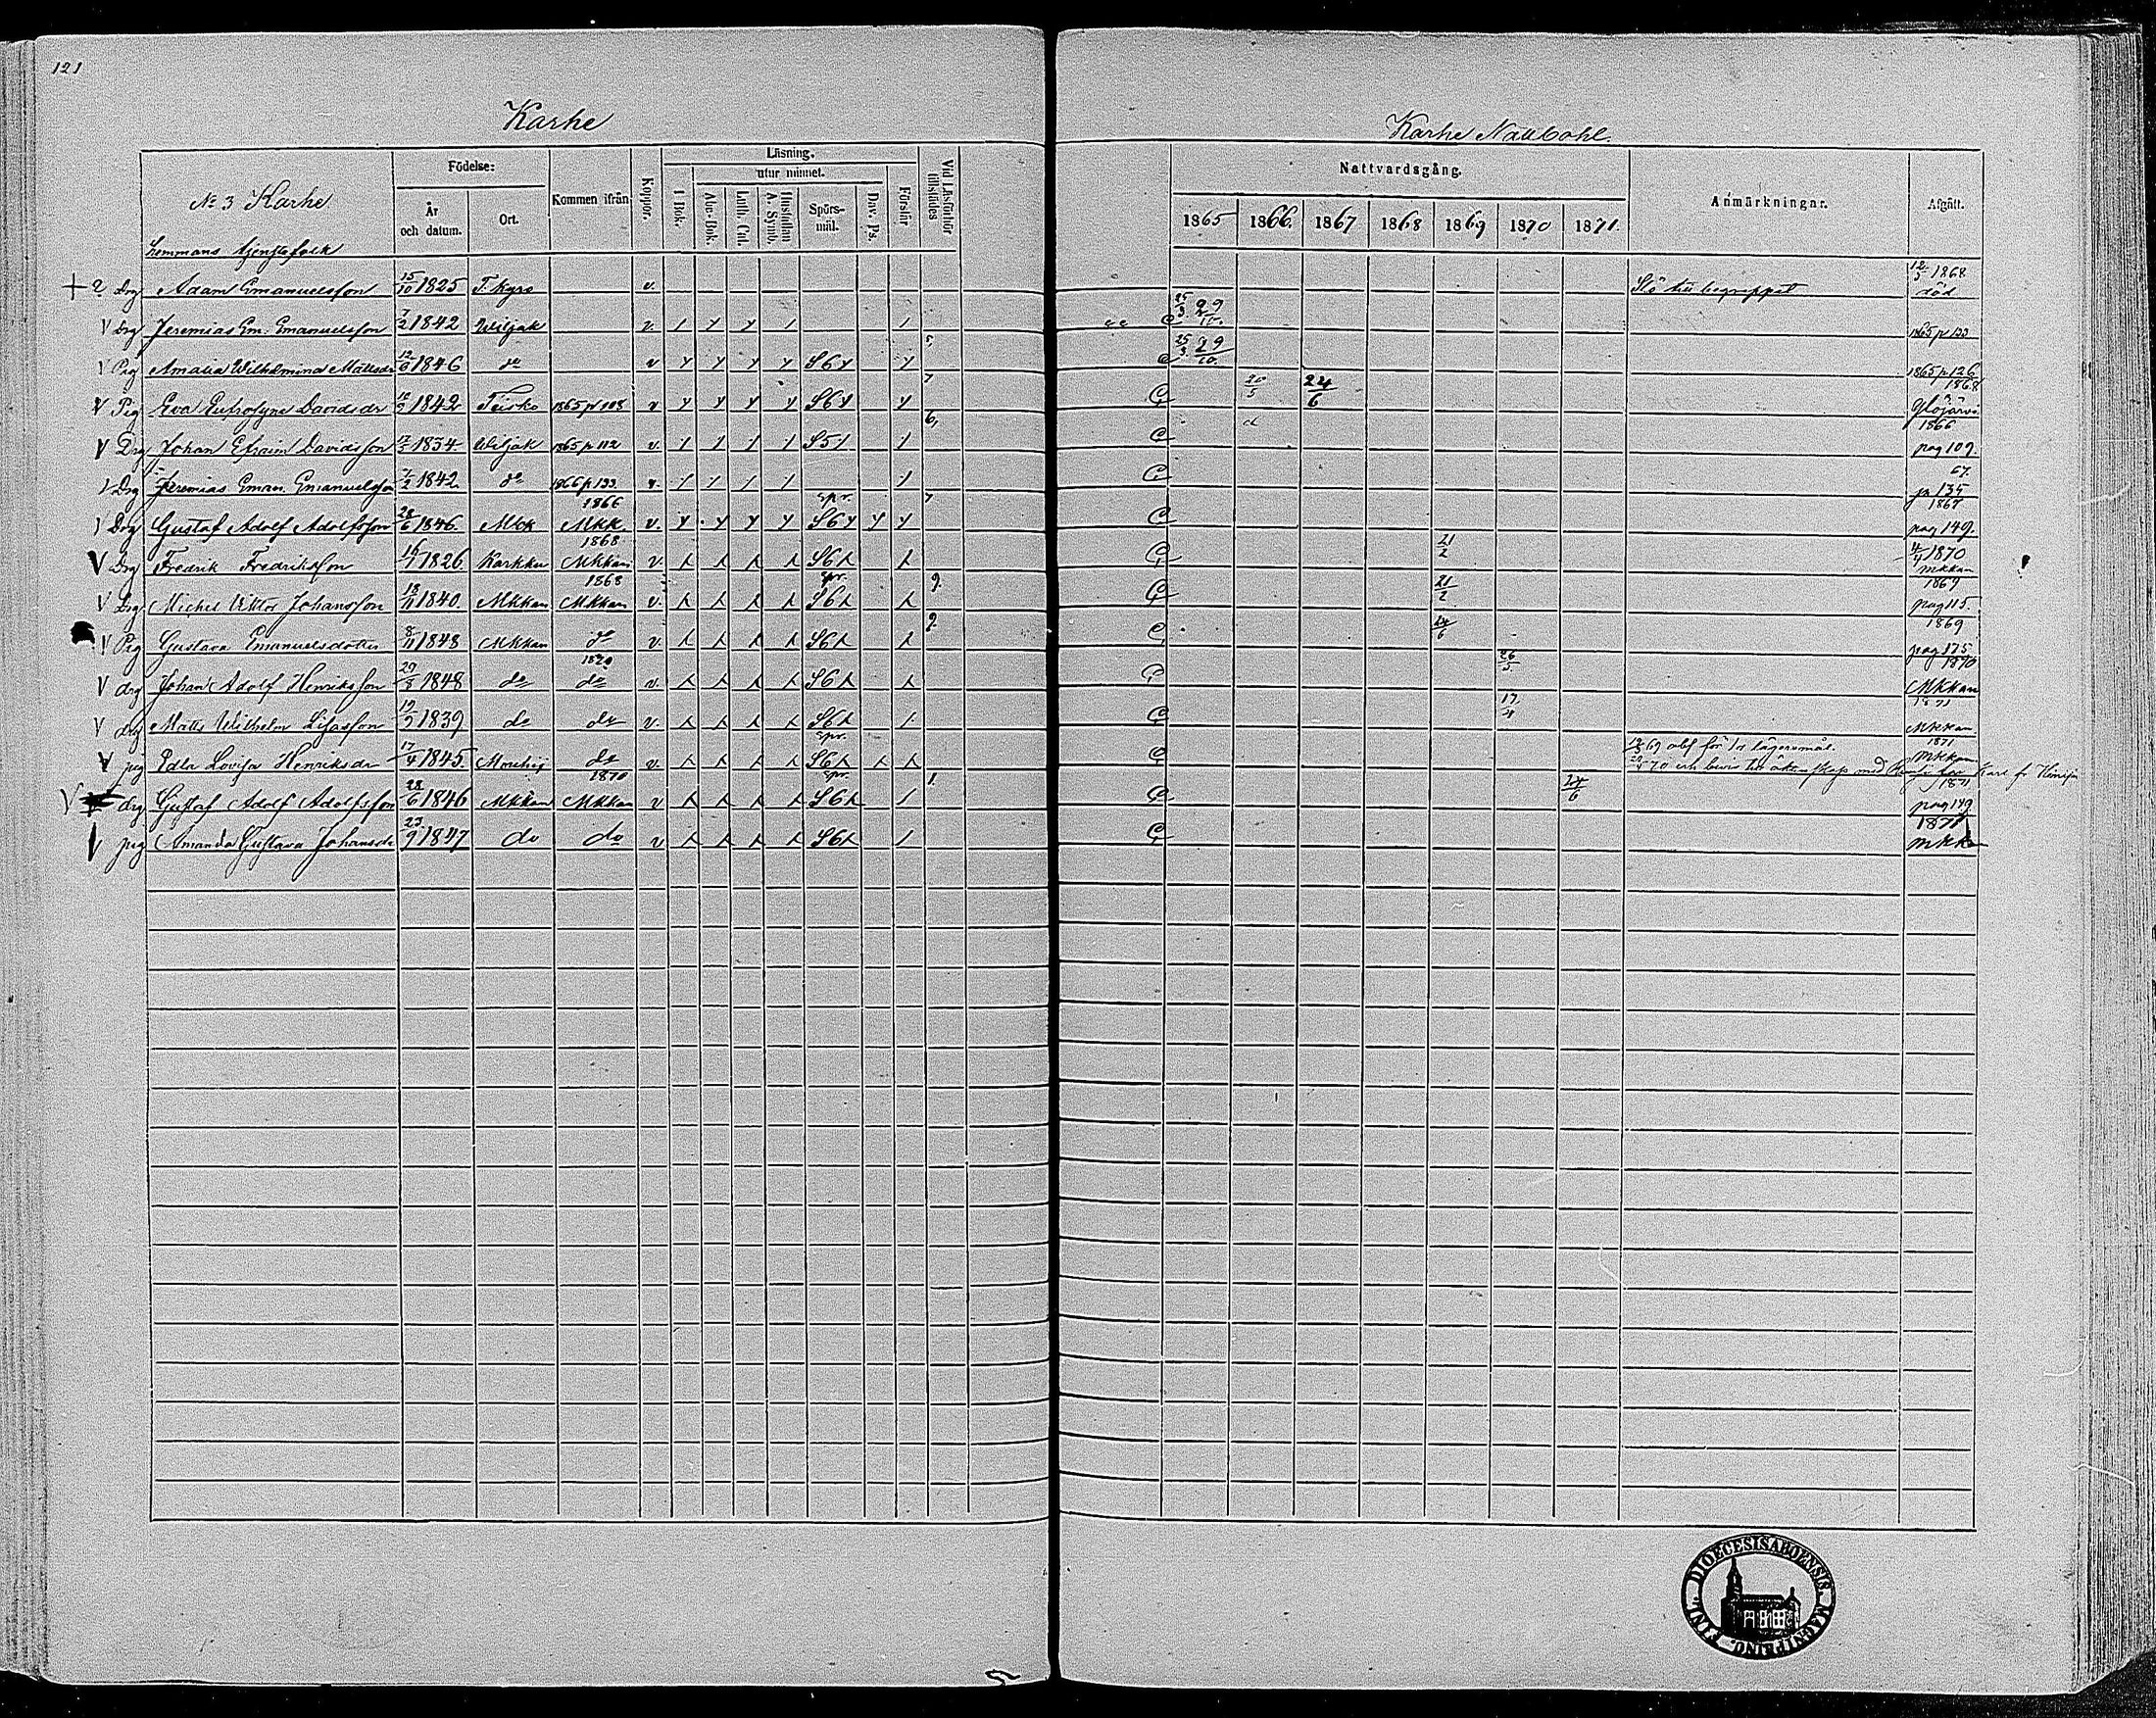 121
Karhe
Karhe Nallbohl.
Läsning.
utur minnet.
Födelse:
Nattvardsgång.
Nº 3 Karhe
År och datum.
Ort.
Kommen ifrån
Koppor.
I Bok.
Abc-Bok.
Luth. Cat.
Hustaflan A. Symb.
Spörsmål.
Dav. Ps.
Förstår
Vid Läsförhör tillstädes
1865 1866. 1867 1868 1869 1870 1871.
Anmärkningar.
Afgått.
hemmans tjenstefolk
+ 2 Drg Adam Emanuelsson 15/10 1825 T. Kyro v. Slö till begreppet 12/5 1868 död
V Drg Jeremias Em. Emanuelsson 7/2 1842 Wiljak v. 25/3 29/10. 1865 p 133
V Pig Amalia Wilhelmina Mattsdr 12/6 1846 do v S6 5, 25/3 29/10. 1865 p 126
V Pig Eva Eufrosyne Davidsdr 12/2 1842 Teisko 1865 p 108 v S6 7 20/5 24/6 1868 Ylöjärvi
V Drg Johan Efraim Davidsson 12/3 1834. Wiljak 1865 p 112 v. S5 6, 1866 pag 109.
V Drg Jeremias Eman. Emanuelsson 7/2 1842 do 1866 p 133 v. 67. p 135
V Drg Gustaf Adolf Adolfsson 28/6 1846. Mkk 1866 Mkk v. spr. S6 7 1867 pag 149.
V Drg Fredrik Fredriksson 16/7 1826 Karkku 1868 Mkkan v. S6 21/2 4/11 1870 Mkkan
V Drg Michel Viktor Johansson 18/11 1840. Mkkan 1868 Mkkan v. spr. S6 9. 21/2 1869 pag 115.
V Pig Gustava Emanuelsdotter 8/11 1848 Mkkan do v. S6 9. 24/6 1869 pag 175
V drg Johan Adolf Henriksson 29/8 1848 do 1870 do v. S6 26/5 1870 Mkkan
V drg Matts Wilhelm Lisasson 19/9 1839 do do v. S6 17./4 1871 Mkkan
V pig Edla Lovisa Henriksdr 17/4 1845. Mouhij do v. spr. S6 69 abs för 1a lägersmål. 1871 Mkkan
V drg Gustaf Adolf Adolfsson 28/6 1846 Mkkan 1870 Mkkan v spr. S6 1. 24/6 1871 pag 149
V pig Amanda Gustava Johansdr 23/9 1847 do do v S6 1871 Mkk
FINL. DIOECESIS ABOENSIS MAGNI PRINC.